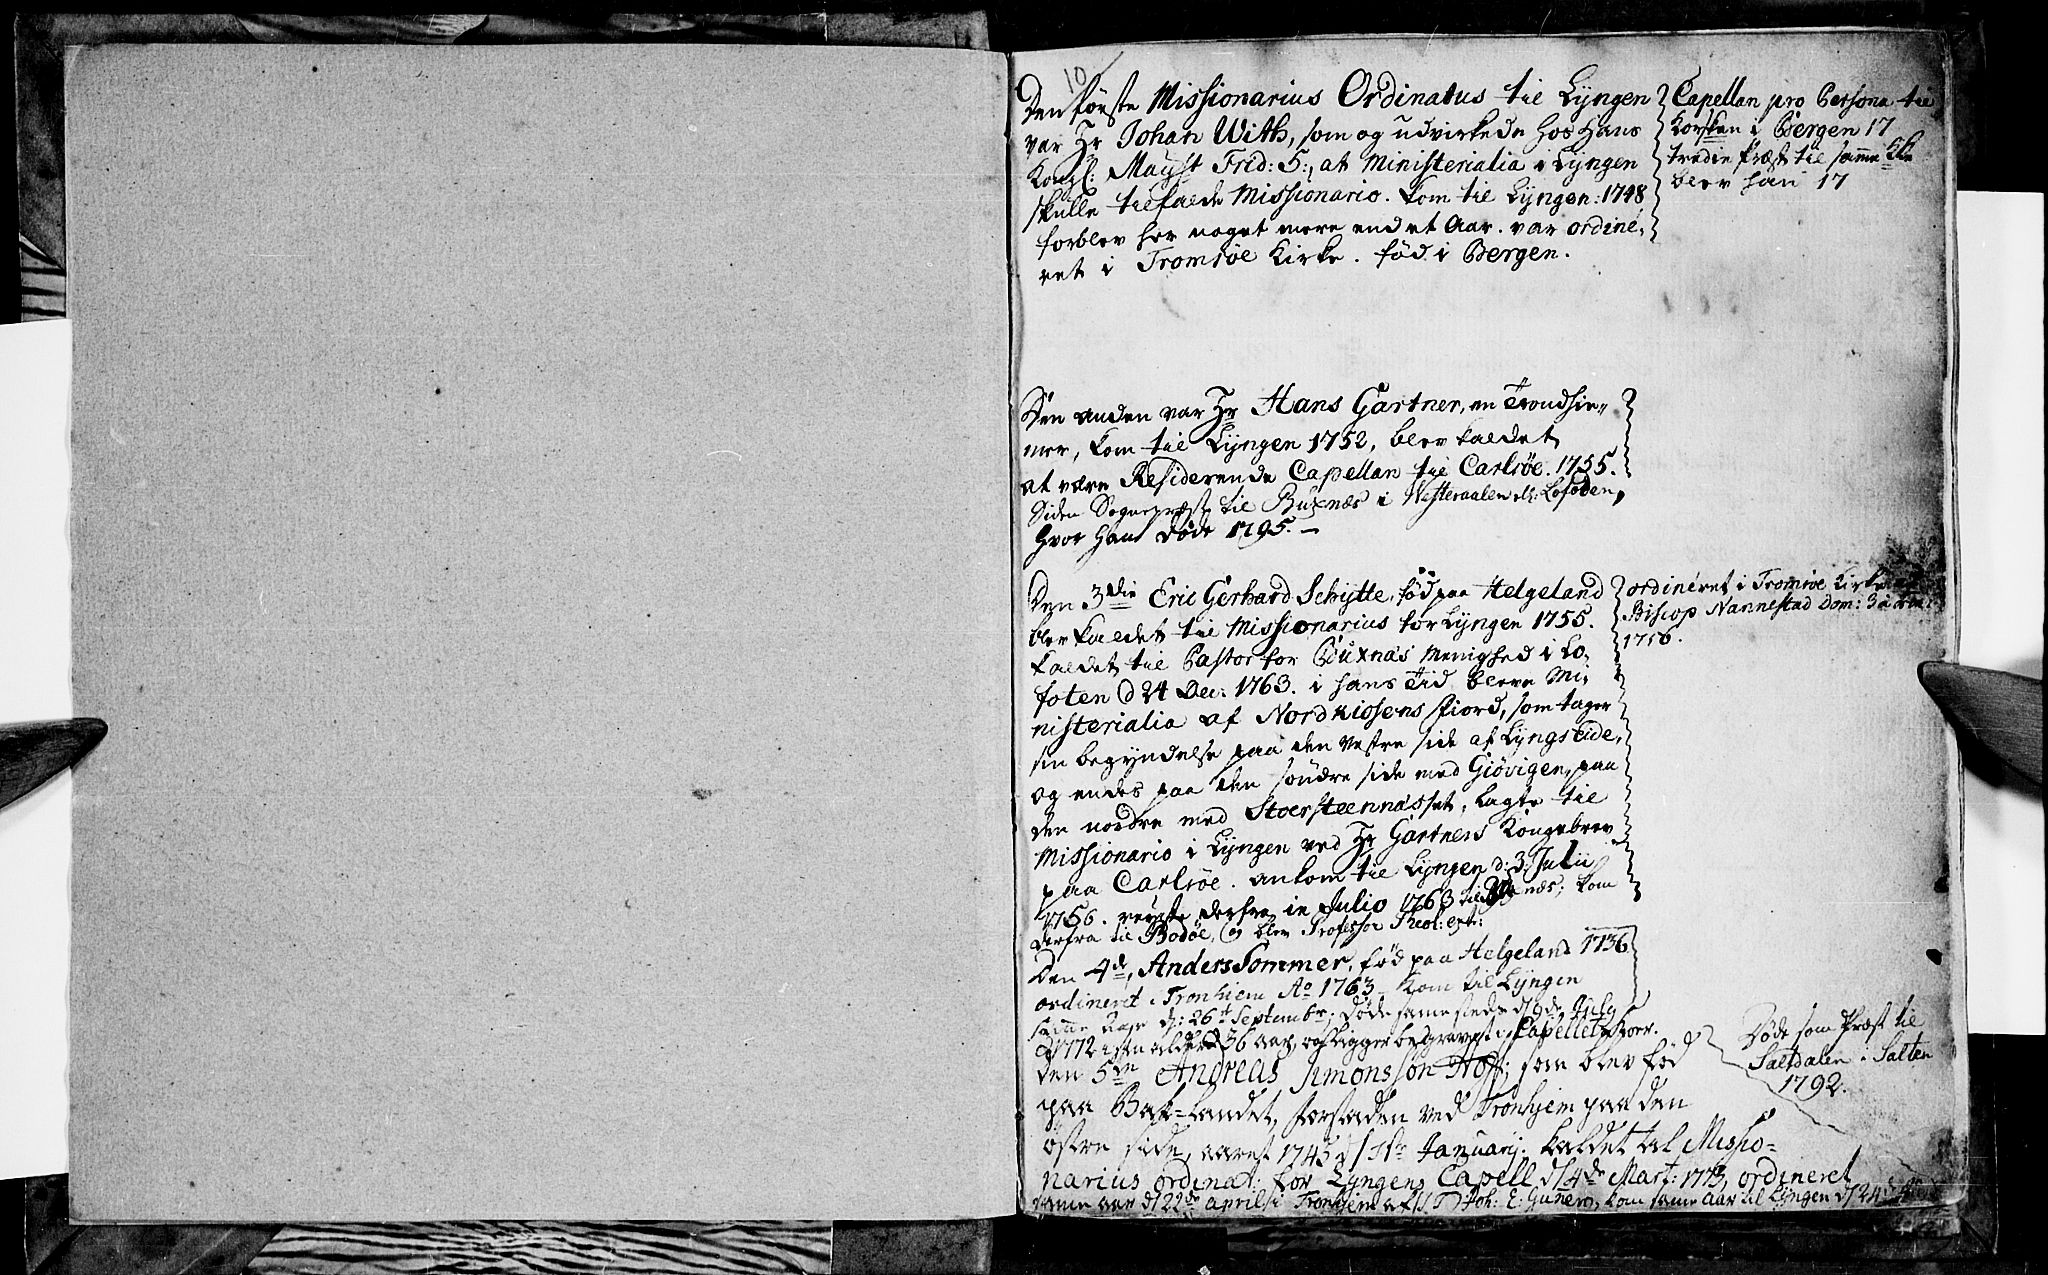 10
Den første Missionarius Ordinatus til Lyngen
var Hr Johan With, som og udvirkede hos Hans
Kongl: Mayst Frid: 5:, at Ministerialia i Lyngen
skulle tilfalde Missionario. kom til Lyngen: 1748
forblev her noget mere end et Aar. var ordine,
ret i Tromsøe Kirke. fød i Bergen.
Capellan pro Persona til
Korsken i Bergen 17
tredie Præst til samme
blev han 17
Den anden var Hr Hans Gartner, en Trondhie„
mer, kom til Lyngen 1752, blev kaldet
at være Residerende Capellan til Carlsøe. 1755.
Siden Sognepræst til Buxnæs i Vesteraalen Lofoden,
hvor han døde 1795. —
Den 3die Eric Gerhard Schytte, fød paa Helgeland
blev kaldet til Missionarius for Lyngen 1755.
kaldet til Pastor for Buxnäs Menighed i Lo,
foten d 24 Dec: 1763. i hans Tid bleve Mi,
nisterialia af Nordkiosens Fiord, som tager
sin begyndelse paa den vestre side af Lyngseide,
og endes paa den søndre side med Giövigen, paa
den nordre med Stoersteennässet, lagte til
Missionario i Lyngen ved Hr Gartners Kongebrev
paa Carlsøe. ankom til Lyngen d: 3 Julii
1756. reyste derfra in Julio 1763 til næs; kom
derfra til Bodøe, og blev Professor Theol: extr:
ordineret i Tromsøe Kirke af
Biscop Nannestad Dom: 3
1756.
Den 4de, Anders Sommer, fød paa Helgeland 1736
ordineret i Tronhiem Ao 1763 kom til Lyngen
samme Aar d: 26t Septembr: Døde sammesteds d 9de July
1772 i sin alders 36 aar, og ligger begravet i Capellets Koer.
Den 5te Andreas Simonssøn Hoff, som blev fød
paa Bak-Landet, forstaden ved Tronhjem paa den
østre side, aaret 1745 d Januarij: kaldet til Missio-
narius ordinat: for Lyngens Capell d 4de Mart: 1773, ordineret
samme aar d 22de april i Tronhjem af Joh: E: Gunerus, kom samme Aar til Lyngen d 24
Døde som Præst til
Saltdalen i Salten
1792.